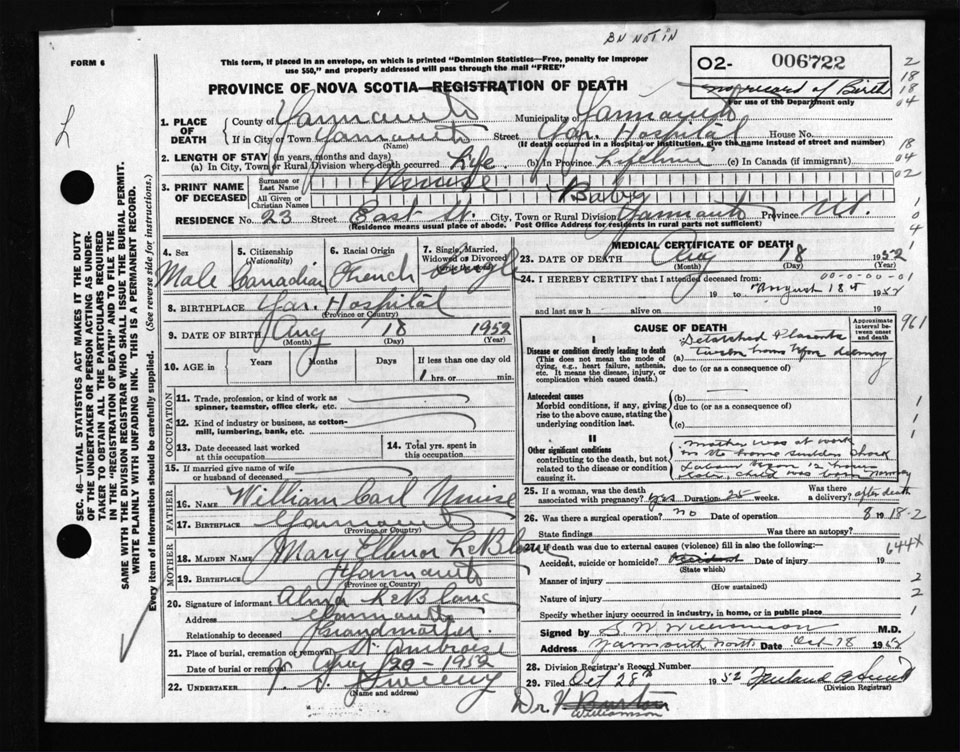 BN NOT IN
FORM 6
This form, if placed in an envelope, on which is printed "Dominion Statistics—Free, penalty for improper
use $50," and properly addressed will pass through the mail "FREE"
02- 006722
PROVINCE OF NOVA SCOTIA—REGISTRATION OF DEATH
no record of Birth
For use of the Department only
2
18
18
04
L
1. PLACE OF DEATH County of Yarmouth Municipality of Yarmouth
If in City or Town Yarmouth (Name) Street Yar. Hospital House No.
(If death occurred in a hospital or institution, give the name instead of street and number)
18
2. LENGTH OF STAY (in years, months and days)
(a) In City, Town or Rural Division where death occurred Life (b) In Province Lifetime (c) In Canada (if immigrant)
04
02
3. PRINT NAME OF DECEASED Surname or Last Name Muise
All Given or Christian Names Baby
RESIDENCE No. 23 Street East St. City, Town or Rural Division Yarmouth Province N.S.
(Residence means usual place of abode. Post Office Address for residents in rural parts not sufficient)
1
0
4
SEC. 46—VITAL STATISTICS ACT MAKES IT THE DUTY
OF THE UNDERTAKER OR PERSON ACTING AS UNDER-
TAKER TO OBTAIN ALL THE PARTICULARS REQUIRED
IN THE "REGISTRATION OF DEATH" AND TO FILE THE
SAME WITH THE DIVISION REGISTRAR WHO SHALL ISSUE THE BURIAL PERMIT.
WRITE PLAINLY WITH UNFADING INK. THIS IS A PERMANENT RECORD.
Every item of Information should be carefully supplied. (See reverse side for instructions.)
4. SEX Male
5. Citizenship (Nationality) Canadian
6. Racial Origin French
7. Single, Married, Widowed or Divorced Single
8. BIRTHPLACE Yar. Hospital
(Province or Country)
9. DATE OF BIRTH Aug 18 1952
(Month) (Day) (Year)
10. AGE in Years Months Days If less than one day old
1 hrs. or min.
OCCUPATION
11. Trade, profession, or kind of work as
spinner, teamster, office clerk, etc.
12. Kind of industry or business, as cotton-
mill, lumbering, bank, etc.
13. Date deceased last worked
at this occupation
14. Total yrs. spent in
this occupation
15. If married give name of wife
or husband of deceased
FATHER
16. NAME William Carl Muise
17. BIRTHPLACE Yarmouth
(Province or Country)
MOTHER
18. MAIDEN NAME Mary Ellenor LeBlanc
19. BIRTHPLACE Yarmouth
(Province or Country)
20. Signature of informant Alma LeBlanc
Address Yarmouth
Relationship to deceased Grandmother
21. Place of burial, cremation or removal St. Ambroise
Date of burial or removal Aug 20 - 1952
22. UNDERTAKER Sweeny
(Name and address)
MEDICAL CERTIFICATE OF DEATH
23. DATE OF DEATH Aug 18 1952
(Month) (Day) (Year)
24. I HEREBY CERTIFY that I attended deceased from:
00-0-00-01
19 to August 18th 1952
and last saw h alive on 19
CAUSE OF DEATH
Approximate interval between onset and death
961
I
Disease or condition directly leading to death
(This does not mean the mode of
dying, e.g., heart failure, asthenia,
etc. It means the disease, injury, or
complication which caused death.)
(a) Detatched Placenta
twelve hours before delivery
due to (or as a consequence of)
Antecedent causes
Morbid conditions, if any, giving
rise to the above cause, stating the
underlying condition last.
(b)
due to (or as a consequence of)
(c)
1
1
1
II
Other significant conditions
contributing to the death, but not
related to the disease or condition
causing it.
mother was at work
in the home sudden shock
Labour 12 hours
later, child was born
25. If a woman, was the death
associated with pregnancy? yes Duration 25 weeks. Was there
a delivery? after death
26. Was there a surgical operation? no Date of operation 19
8 18-2
State findings Was there an autopsy?
27. If death was due to external causes (violence) fill in also the following:—
644X
Accident, suicide or homicide? Accident Date of injury 19
(State which)
Manner of injury
(How sustained)
2
Nature of injury
2
Specify whether injury occurred in industry, in home, or in public place
1
Signed by S. W. Williamson M.D.
Address Yarmouth North Date Oct 28 1952
28. Division Registrar's Record Number
29. Filed Oct 28th 1952
(Division Registrar)
Dr. Burton
Williamson